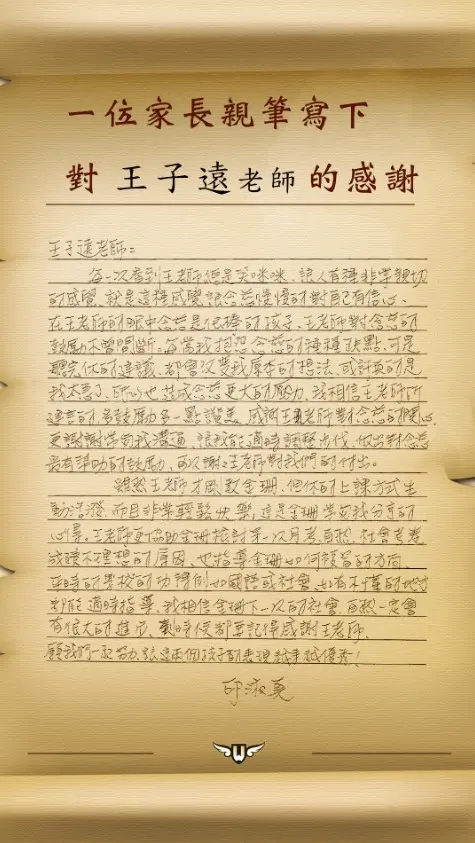 一位家長親筆寫下
對 王子遠老師 的感謝
王子遠老師:
每一次看到王老師總是笑咪咪、讓人有種非常親切
的感覺、就是這種感覺讓念慈慢慢的對自己有信心、
在王老師的眼中念慈是很棒的孩子、王老師對念慈的
鼓勵不曾間斷。每當我抱怨念慈的種種缺點、可是
聽完你的建議、都會改變我原本的想法、或許真的是
我太急了、所以也造成念慈更大的壓力、我相信王老師所
建言的多鼓勵多一點讚美、感謝王老師對念慈的關心、
更謝謝常與我溝通、讓我能適時調整
最有幫助的鼓勵、再次謝謝王老師對我們的付出。
雖然王老師才剛教金珊、但你的上課方式生
動活潑、而且非常輕鬆快樂、這是金珊常與我分享的
心得。王老師更協助金珊檢討第一次月考、自然、社會考卷
成績不理想的原因、也指導金珊如何複習的方向、
平時的學校的功課例如國語或社會、如有不懂的地方
都能適時指導、我相信金珊下一次的社會、自然一定會
有很大的進步、到時候都要記得感謝王老師、
願我們一起努力、讓這兩個孩子的表現越來越優秀!
邱淑
W